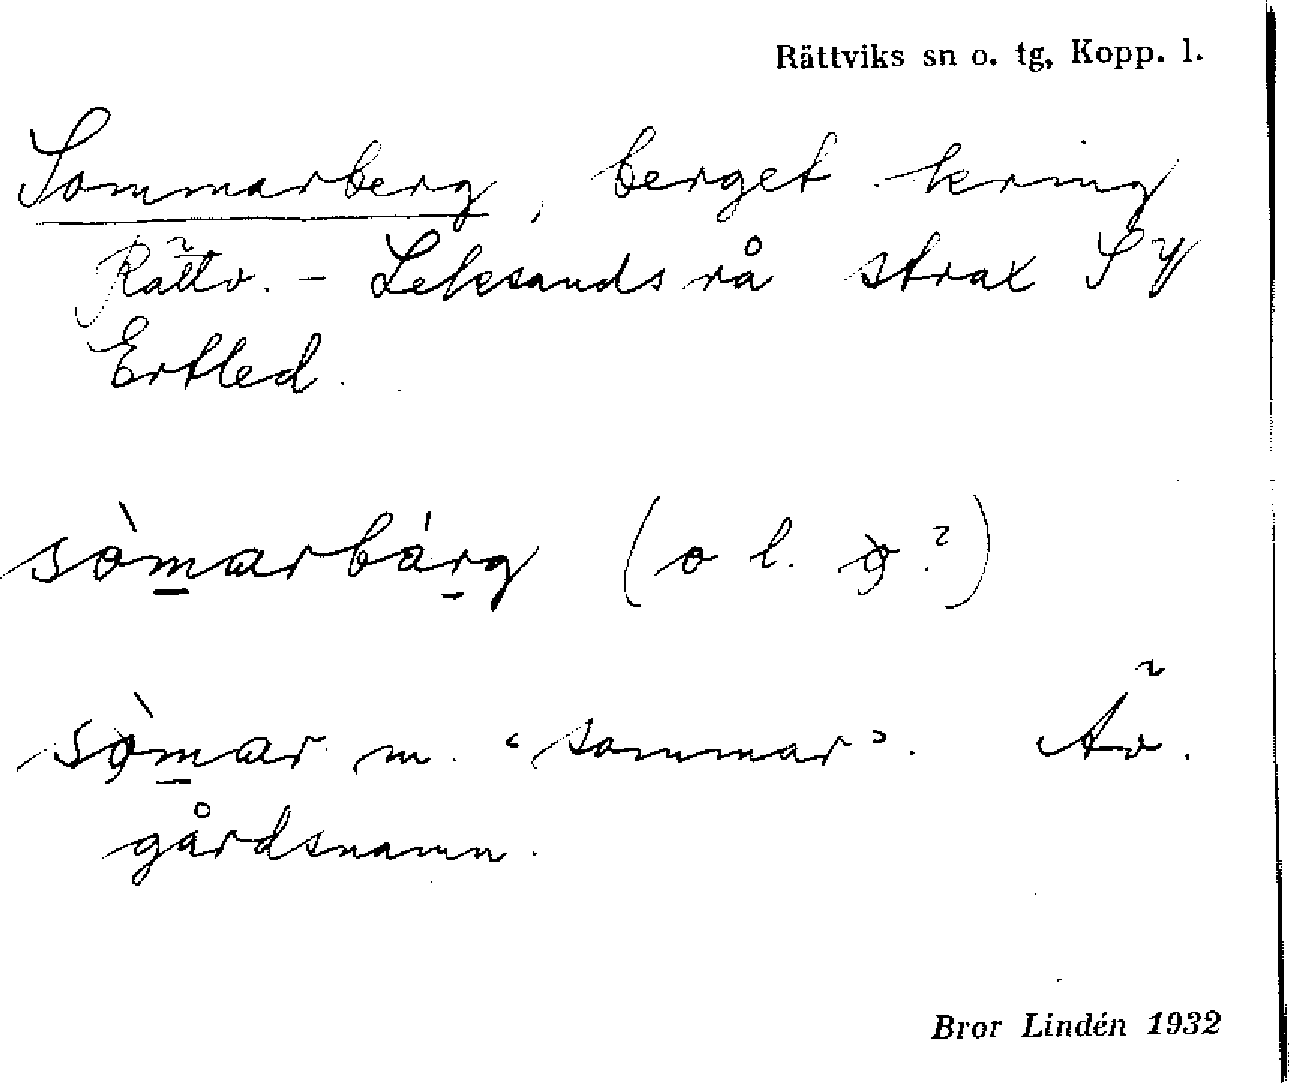 Rättviks sn o. tg, Kopp. l.
Sommarberg, berget kring
Rättv. - Leksands rå strax SV
Ertled.
sòmarbárg (o l. ǫ?)
sòmar m. 'sommar'. Äv.
gårdsnamn.
Bror Lindén 1932